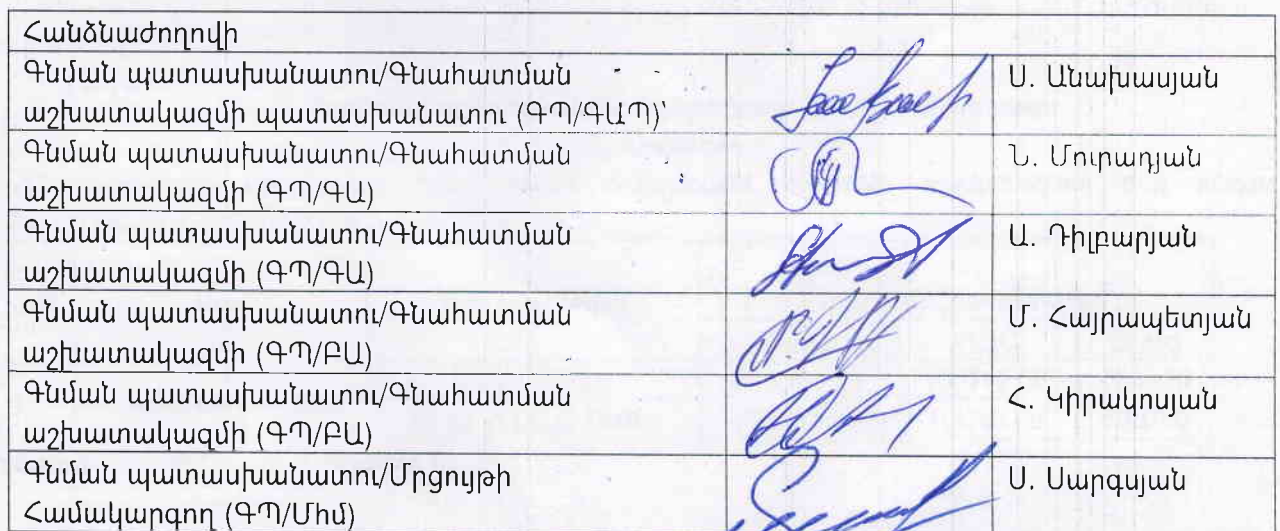 Հանձնաժողովի
Գնման պատասխանատու/Գնահատման
աշխատակազմի պատասխանատու (ԳՊ/ԳԱՊ)՝
Ս. Անախասյան
Գնման պատասխանատու/Գնահատման
աշխատակազմի (ԳՊ/ԳԱ)
Ն. Մուրադյան
Գնման պատասխանատու/Գնահատման
աշխատակազմի (ԳՊ/ԳԱ)
Ա. Դիլբարյան
Գնման պատասխանատու/Գնահատման
աշխատակազմի (ԳՊ/ԲԱ)
Մ. Հայրապետյան
Գնման պատասխանատու/Գնահատման
աշխատակազմի (ԳՊ/ԲԱ)
Հ. Կիրակոսյան
Գնման պատասխանատու/Մրցույթի
Համակարգող (ԳՊ/Մհմ)
Ս. Սարգսյան